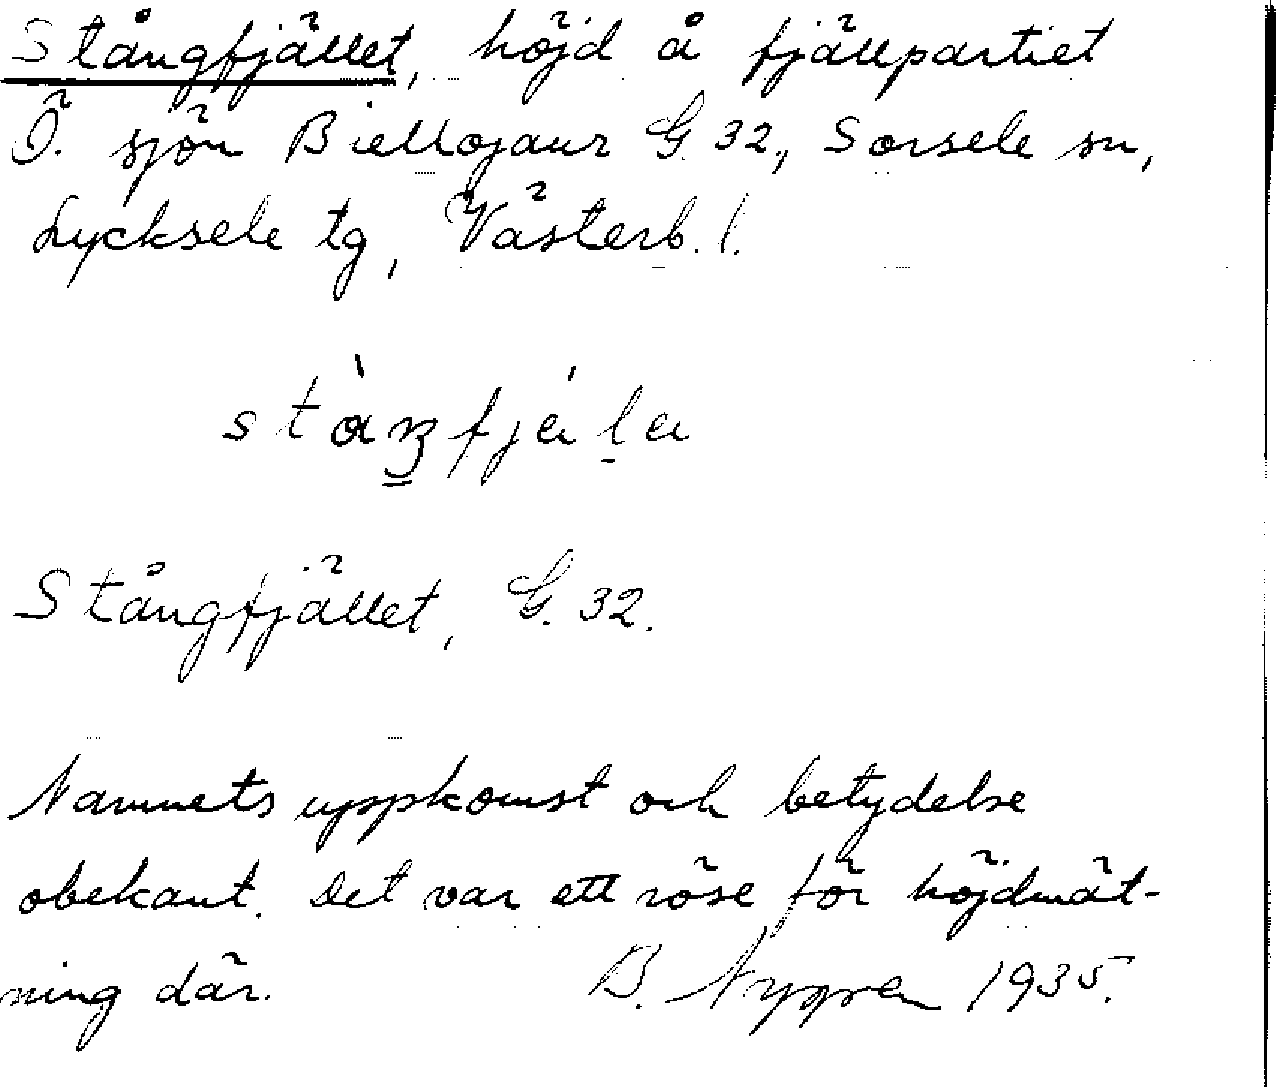 Stångfjället, höjd å fjällpartiet
Ö. sjön Biellojaur G. 32, Sorsele sn,
Lycksele tg, Västerb. l.
Stångfjället, G. 32.
Namnets uppkomst och betydelse
obekant. Det var ett röse för höjdmät-
ning där. B. Nygren 1935.